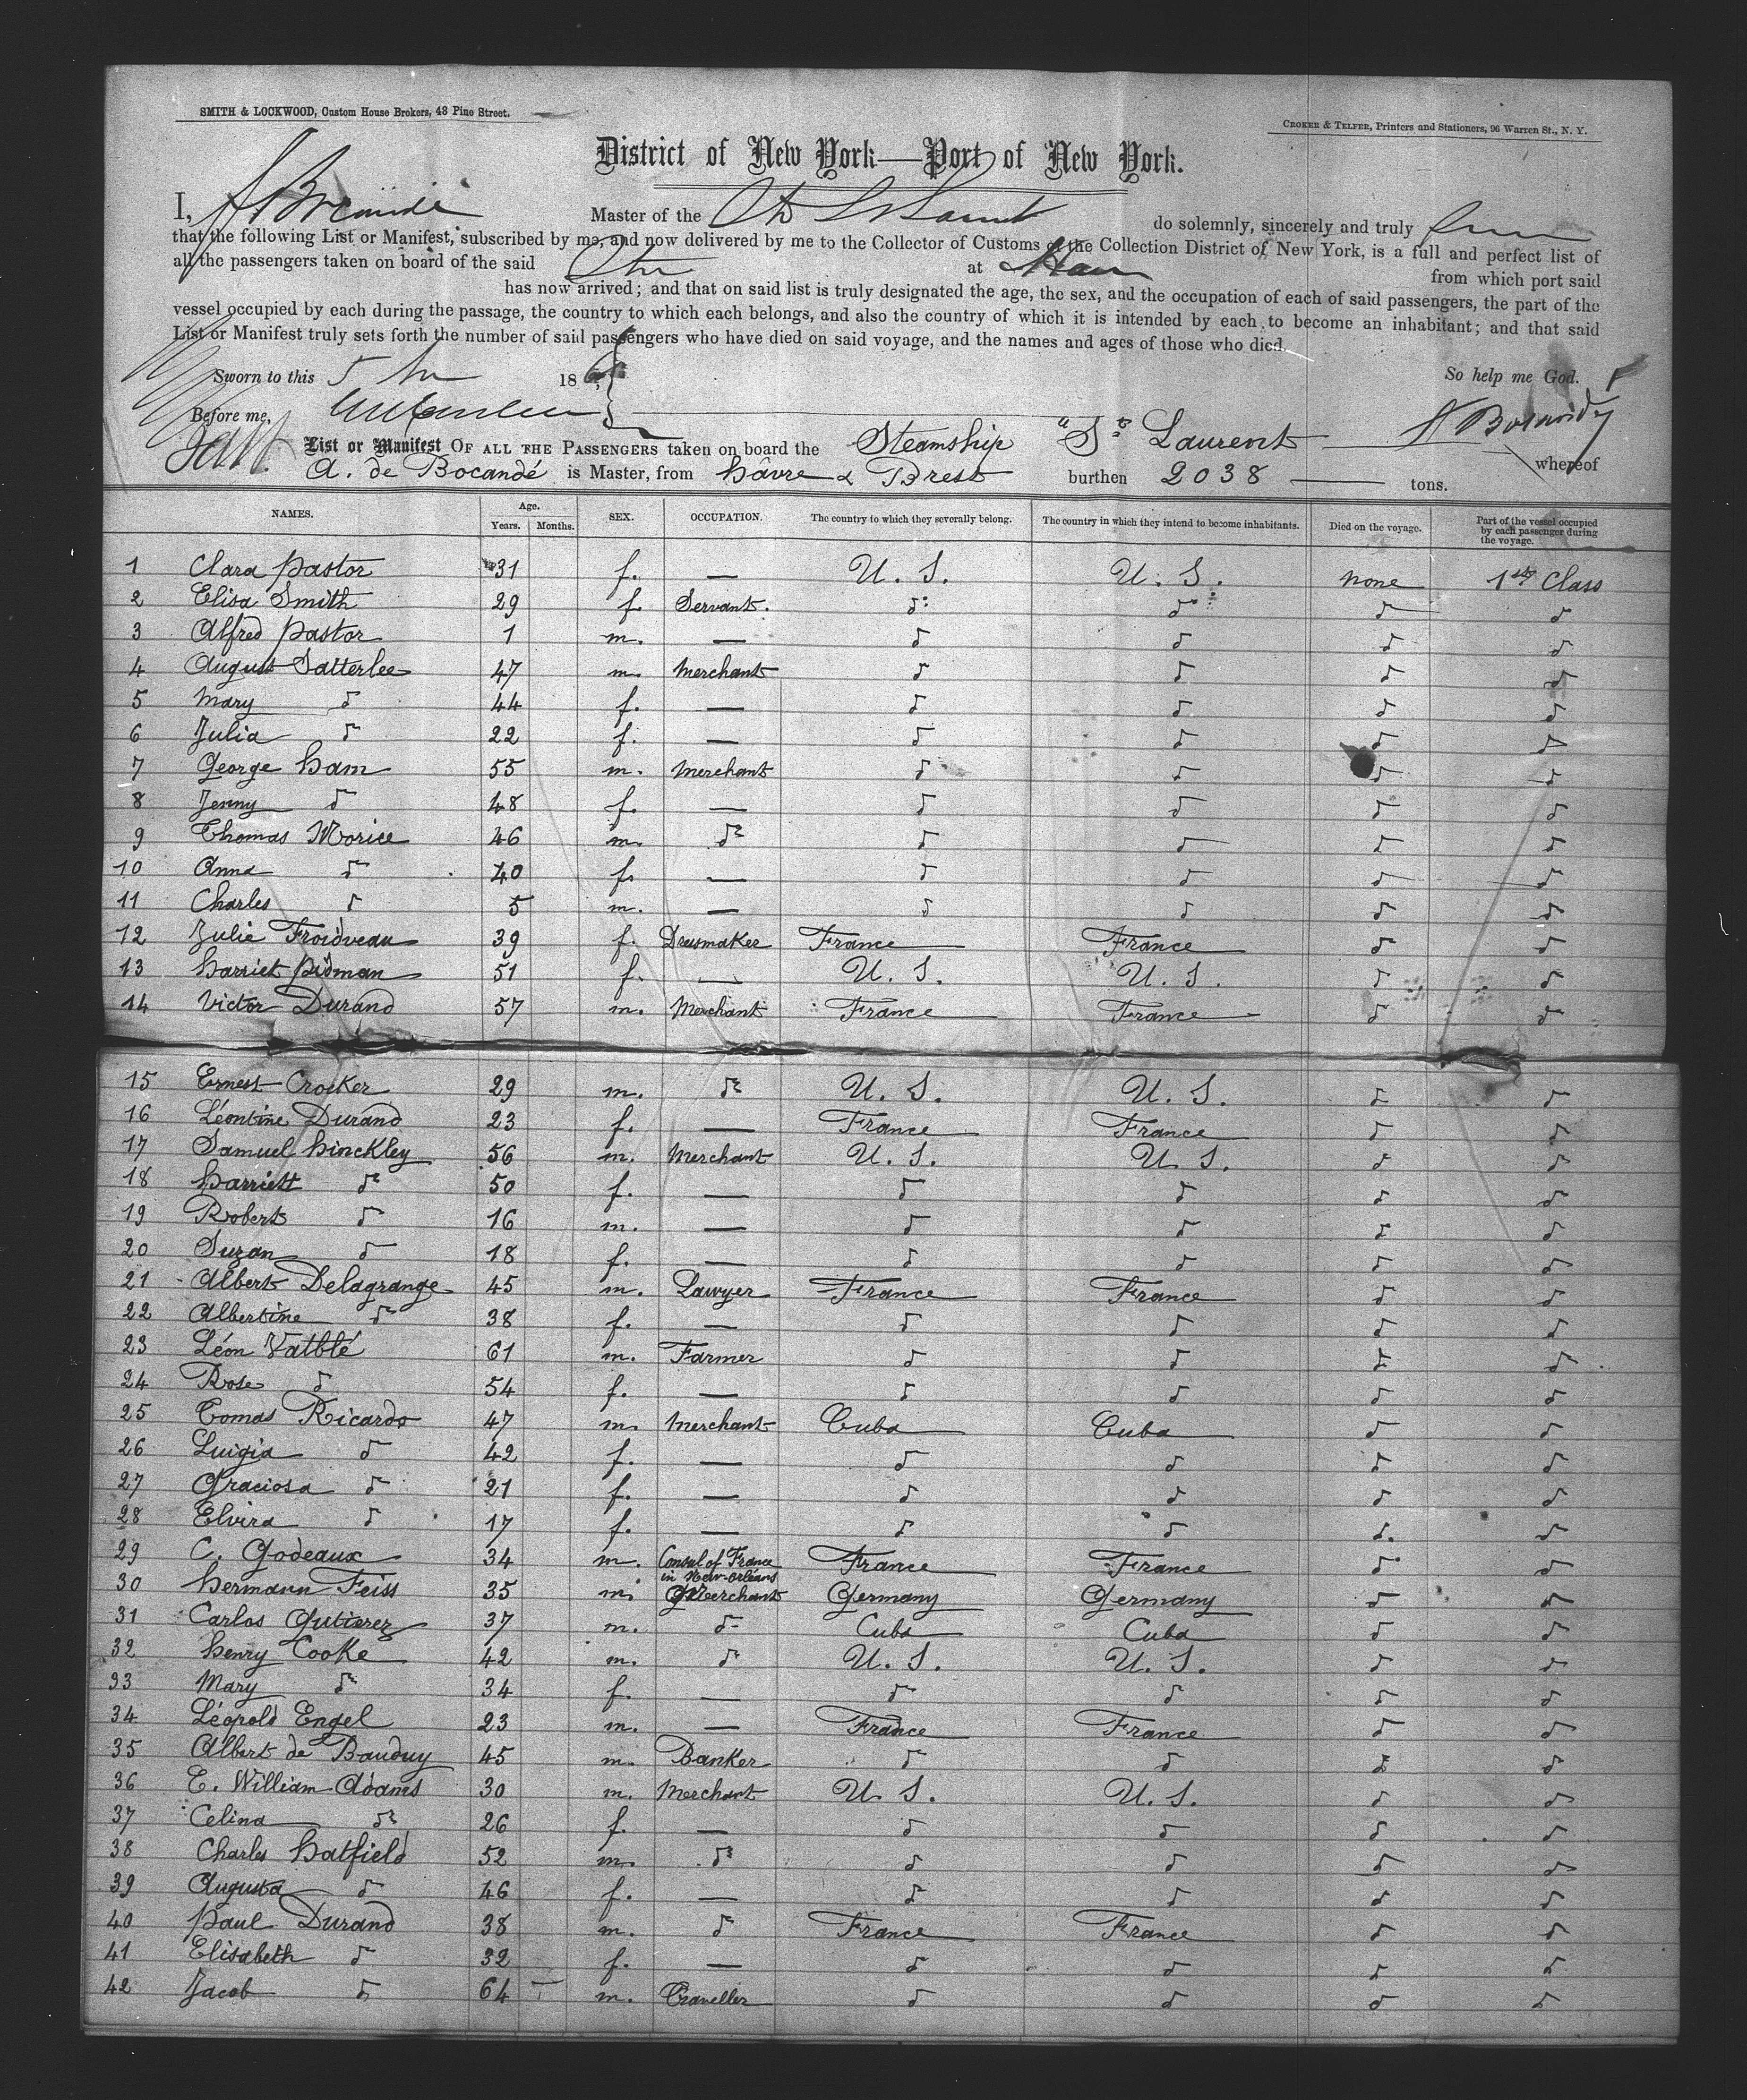 SMITH & LOCKWOOD, Custom House Brokers, 48 Pine Street.
CROKER & TELFER, Printers and Stationers, 96 Warren St., N. Y.
District of New York—Port of New York.
I, Master of the do solemnly, sincerely and truly
that the following List or Manifest, subscribed by me, and now delivered by me to the Collector of Customs of the Collection District of New York, is a full and perfect list of
all the passengers taken on board of the said Str at from which port said
has now arrived; and that on said list is truly designated the age, the sex, and the occupation of each of said passengers, the part of the
vessel occupied by each during the passage, the country to which each belongs, and also the country of which it is intended by each to become an inhabitant; and that said
List or Manifest truly sets forth the number of said passengers who have died on said voyage, and the names and ages of those who died.
Sworn to this 5 186 So help me God.
Before me,
List or Manifest OF ALL THE PASSENGERS taken on board the Steamship "St Laurent whereof
A. de Bocandé is Master, from hâvre & Brest burthen 2038 tons.
NAMES. Age. Years. Months. SEX. OCCUPATION. The country to which they severally belong. The country in which they intend to become inhabitants. Died on the voyage. Part of the vessel occupied by each passenger during the voyage.
1 Clara Pastor 31 f. — U. S. U. S. none 1st Class
2 Elisa Smith 29 f. Servant. do do do do
3 Alfred Pastor 1 m. — do do do do
4 August Satterlee 47 m. Merchant do do do do
5 Mary do 44 f. — do do do do
6 Julia do 22 f. — do do do do
7 George Ham 55 m. Merchant do do do do
8 Jenny do 48 f. — do do do do
9 Thomas Morice 46 m. do do do do do
10 Anna do 40 f. — do do do do
11 Charles do 5 m. — do do do do
12 Julie Froidveau 39 f. Dressmaker France France do do
13 Harriet Pidman 51 f. — U. S. U. S. do do
14 Victor Durand 57 m. Merchant France France do do
15 Ernest Crocker 29 m. do U. S. U. S. do do
16 Léontine Durand 23 f. — France France do do
17 Samuel Hinckley 56 m. Merchant U. S. U. S. do do
18 Harriett do 50 f. — do do do do
19 Robert do 16 m. — do do do do
20 Suzan do 18 f. — do do do do
21 Albert Delagrange 45 m. Lawyer France France do do
22 Albertine do 38 f. — do do do do
23 Léon Vatblé 61 m. Farmer do do do do
24 Rose do 54 f. — do do do do
25 Tomas Ricardo 47 m. Merchant Cuba Cuba do do
26 Luigia do 42 f. — do do do do
27 Graciosa do 21 f. — do do do do
28 Elvira do 17 f. — do do do do
29 C. Godeaux 34 m. Consul of France in New-Orléans France France do do
30 Hermann Feiss 35 m. Merchant Germany Germany do do
31 Carlos Gutierez 37 m. do Cuba Cuba do do
32 Henry Cooke 42 m. do U. S. U. S. do do
33 Mary do 34 f. — do do do do
34 Léopold Engel 23 m. — France France do do
35 Albert de Bauduy 45 m. Banker do do do do
36 E. William Adams 30 m. Merchant U. S. U. S. do do
37 Celina do 26 f. — do do do do
38 Charles Hatfield 52 m. do do do do do
39 Augusta do 46 f. — do do do do
40 Paul Durand 38 m. do France France do do
41 Elisabeth do 32 f. — do do do do
42 Jacob do 64 — m. Traveller do do do do